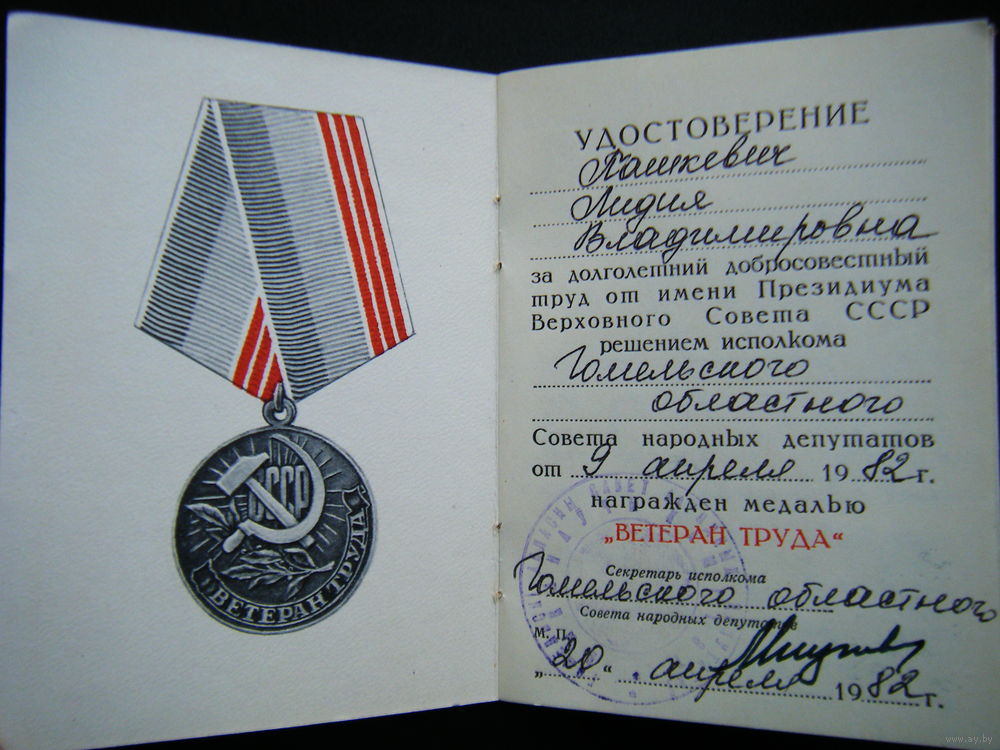 СССР
ВЕТЕРАН ТРУДА
УДОСТОВЕРЕНИЕ
Пашкевич
Лидия
Владимировна
за долголетний добросовестный
труд от имени Президиума
Верховного Совета СССР
решением исполкома
Гомельского
областного
Совета народных депутатов
от 9 апреля 1982 г.
награжден медалью
„ВЕТЕРАН ТРУДА“
Секретарь исполкома
Гомельского областного
Совета народных депутатов
М. П.
„20“ апреля 1982 г.
www.ay.by